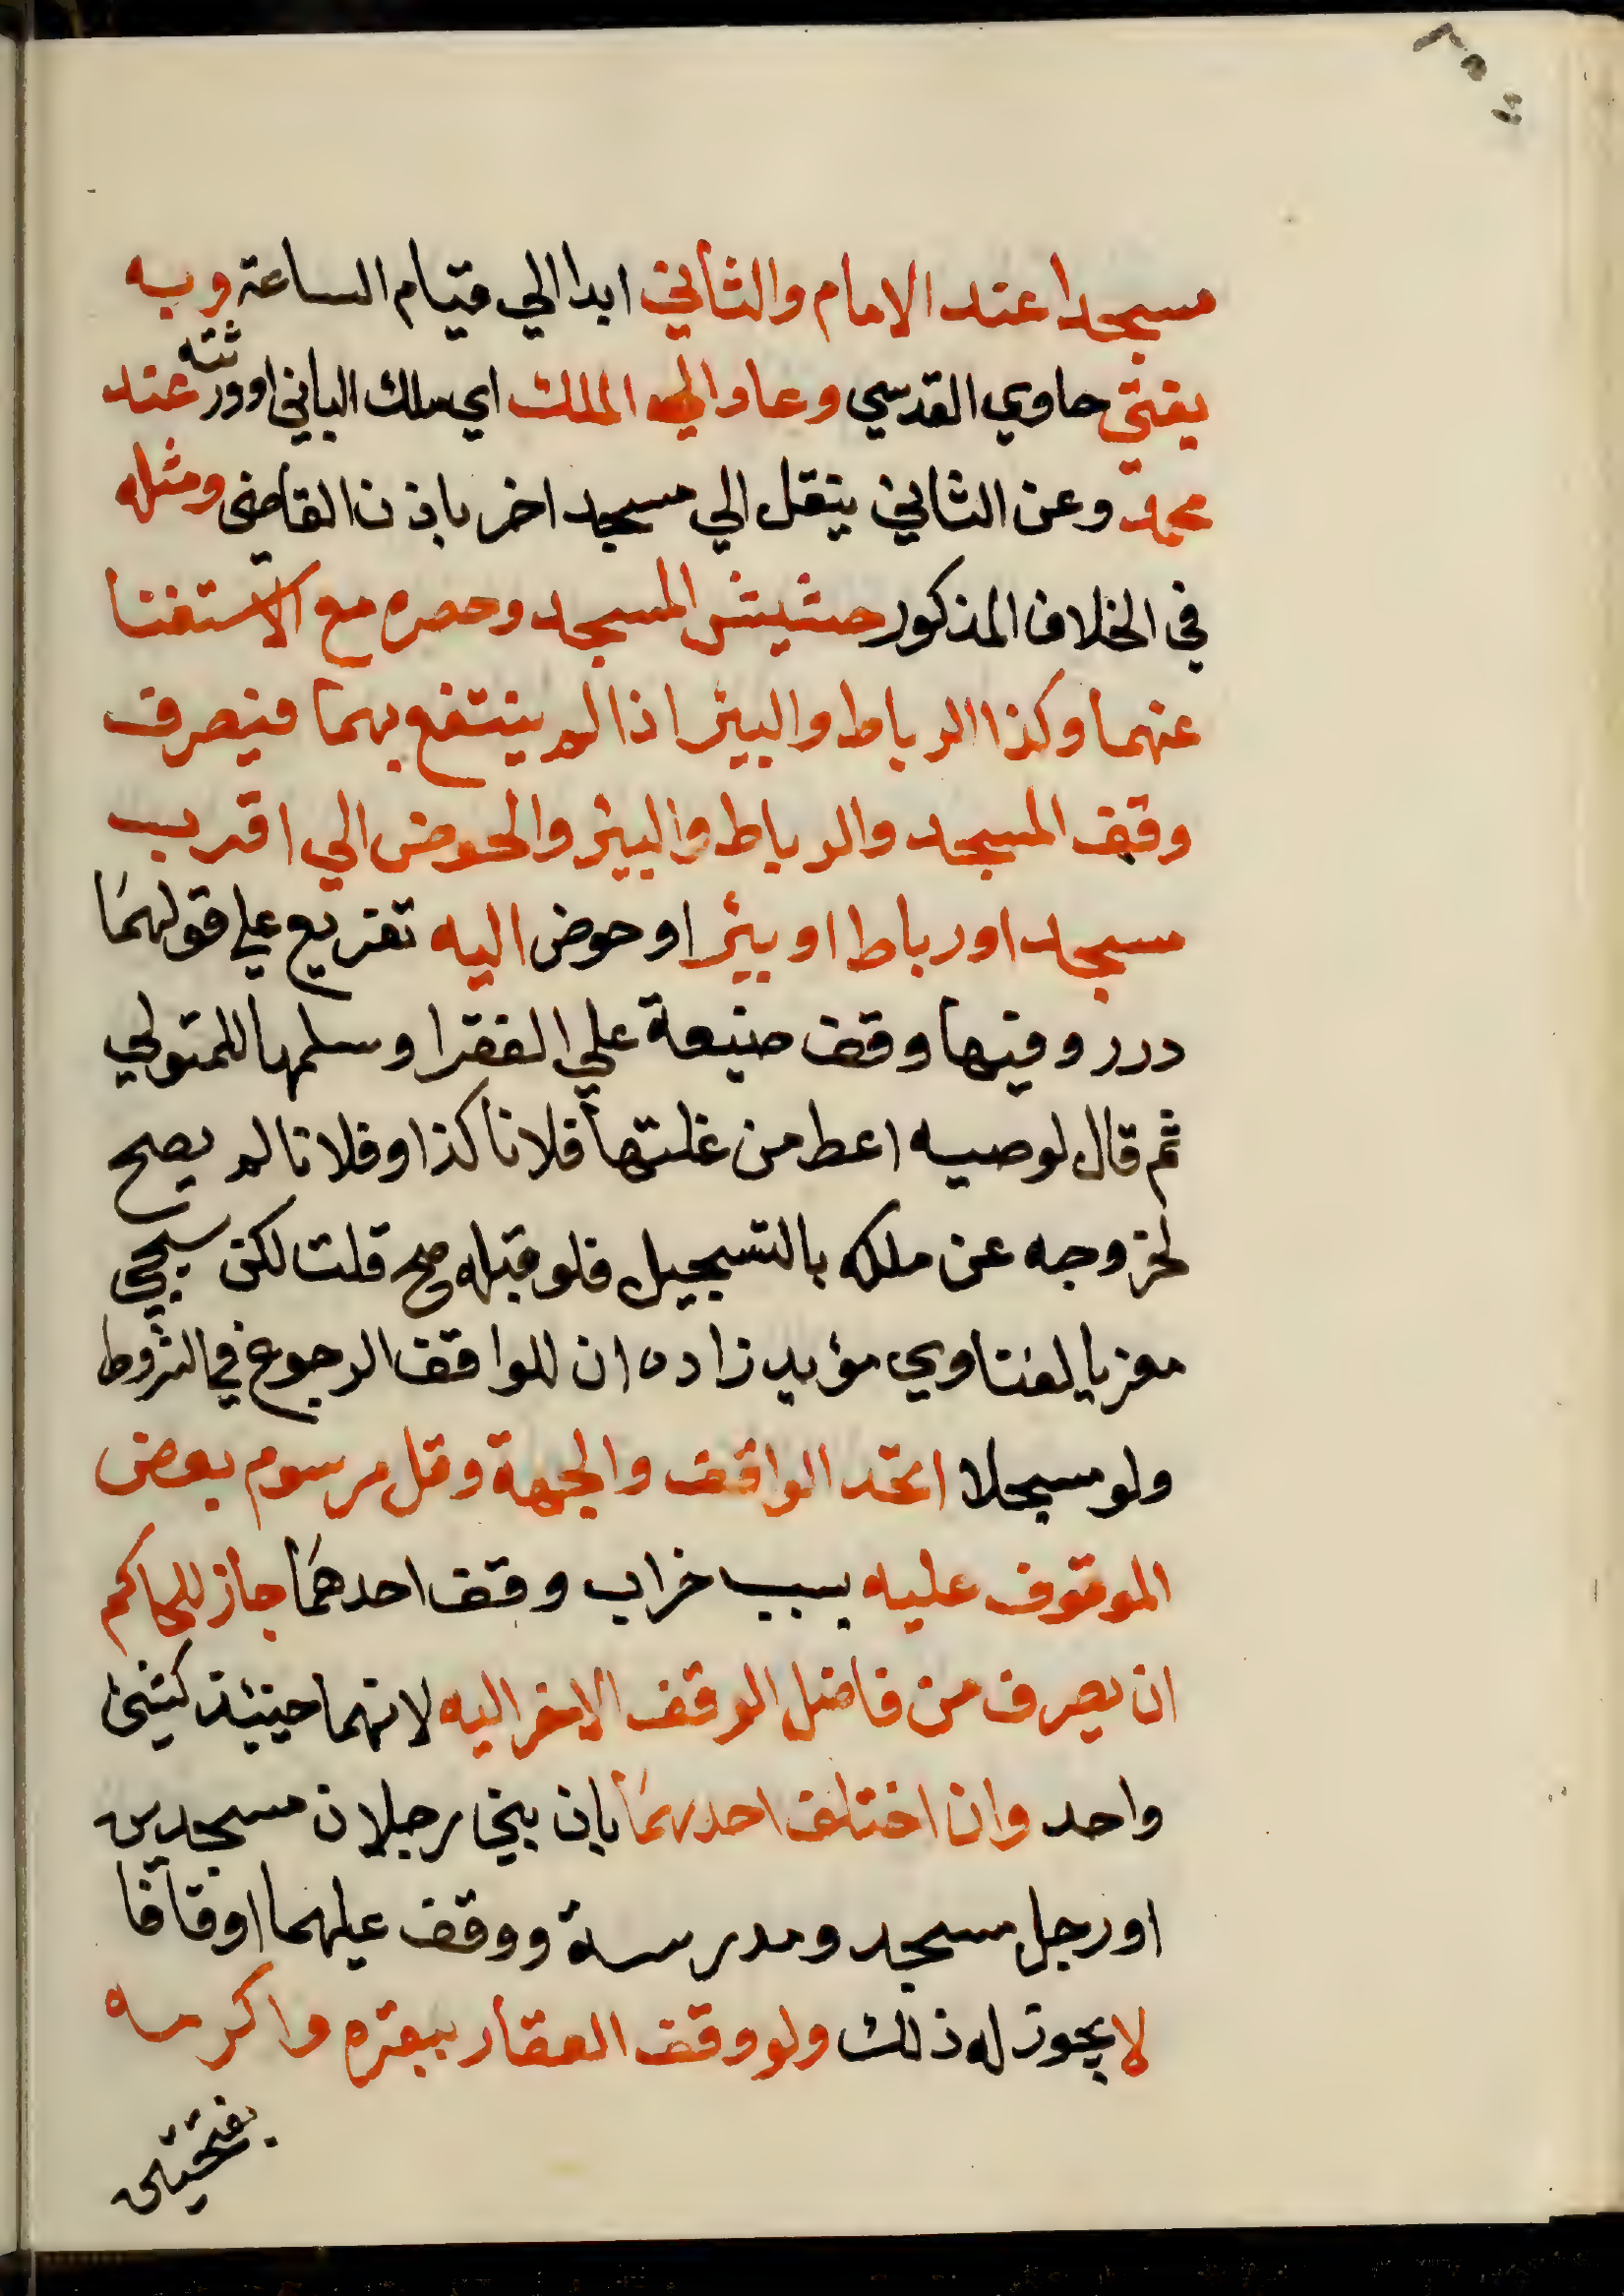 مسجدا عند الامام والثاني ابدا الي قيام الساعة وبه
يفتي حاوي القدسي وعاد الي الملك اي ملك الباني اوورثته عند
محمد وعن الثاني ينقل الي مسجد اخر باذن القاضي ومثله
في الخلاف المذكور حشيش المسجد وحصره مع الاستغنا
عنهما وكذا الرباط والبير اذا لم ينتفع بهما فيصرف
وقف المسجد والرباط والبير والحوض الي اقرب
مسجد اورباط اوبير اوحوض اليه تفريع علي قولهما
درر وفيها وقف ضيعة علي الفقرا وسلمها للمتولي
ثم قال لوصيه اعط من غلتها فلانا كذا وفلانا لم يصح
لخروجه عن ملكه بالتسجيل فلو قبله صح قلت لكن سيجي
معزيا لفتاوي مؤيد زاده ان للواقف الرجوع في الشروط
ولو مسجلا اتحد الواقف والجهة وقل مرسوم بعض
الموقوف عليه بسبب خراب وقف احدهما جاز للحاكم
ان يصرف من فاضل الوقف الاخر اليه لانهما حينئذ كشئ
واحد وان اختلف احدهما بان بني رجلان مسجدين
اورجل مسجد ومدرسة ووقف عليهما اوقافا
لا يجوز له ذلك ولو وقف العقار ببقره واكرسه